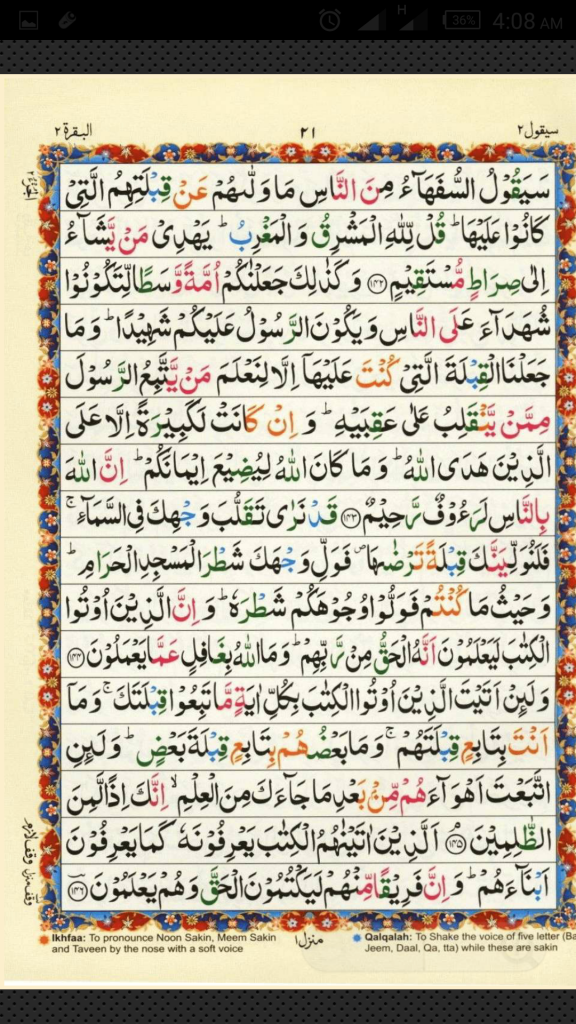 H
36%
4:08 AM
البقرة ٢
٢١
سيقول ٢
سَيَقُوْلُ السُّفَهَآءُ مِنَ النَّاسِ مَا وَلّٰىهُمْ عَنْ قِبْلَتِهِمُ الَّتِیْ
كَانُوْا عَلَيْهَا ؕ قُلْ لِّلّٰهِ الْمَشْرِقُ وَ الْمَغْرِبُ ؕ يَهْدِیْ مَنْ يَّشَآءُ
اِلٰی صِرَاطٍ مُّسْتَقِيْمٍ ﴿۱۴۲﴾ وَ كَذٰلِكَ جَعَلْنٰكُمْ اُمَّةً وَّسَطًا لِّتَكُوْنُوْا
شُهَدَآءَ عَلَی النَّاسِ وَ يَكُوْنَ الرَّسُوْلُ عَلَيْكُمْ شَهِيْدًا ؕ وَ مَا
جَعَلْنَا الْقِبْلَةَ الَّتِیْ كُنْتَ عَلَيْهَاۤ اِلَّا لِنَعْلَمَ مَنْ يَّتَّبِعُ الرَّسُوْلَ
مِمَّنْ يَّنْقَلِبُ عَلٰی عَقِبَيْهِ ؕ وَ اِنْ كَانَتْ لَكَبِيْرَةً اِلَّا عَلَی
الَّذِيْنَ هَدَی اللّٰهُ ؕ وَ مَا كَانَ اللّٰهُ لِيُضِيْعَ اِيْمَانَكُمْ ؕ اِنَّ اللّٰهَ
بِالنَّاسِ لَرَءُوْفٌ رَّحِيْمٌ ﴿۱۴۳﴾ قَدْ نَرٰی تَقَلُّبَ وَجْهِكَ فِی السَّمَآءِ ۚ
فَلَنُوَلِّيَنَّكَ قِبْلَةً تَرْضٰىهَا ۪ فَوَلِّ وَجْهَكَ شَطْرَ الْمَسْجِدِ الْحَرَامِ ؕ
وَ حَيْثُ مَا كُنْتُمْ فَوَلُّوْا وُجُوْهَكُمْ شَطْرَهٗ ؕ وَ اِنَّ الَّذِيْنَ اُوْتُوا
الْكِتٰبَ لَيَعْلَمُوْنَ اَنَّهُ الْحَقُّ مِنْ رَّبِّهِمْ ؕ وَ مَا اللّٰهُ بِغَافِلٍ عَمَّا يَعْمَلُوْنَ ﴿۱۴۴﴾
وَ لَىِٕنْ اَتَيْتَ الَّذِيْنَ اُوْتُوا الْكِتٰبَ بِكُلِّ اٰيَةٍ مَّا تَبِعُوْا قِبْلَتَكَ ۚ وَ مَاۤ
اَنْتَ بِتَابِعٍ قِبْلَتَهُمْ ۚ وَ مَا بَعْضُهُمْ بِتَابِعٍ قِبْلَةَ بَعْضٍ ؕ وَ لَىِٕنِ
اتَّبَعْتَ اَهْوَآءَهُمْ مِّنْۢ بَعْدِ مَا جَآءَكَ مِنَ الْعِلْمِ ۙ اِنَّكَ اِذًا لَّمِنَ
الظّٰلِمِيْنَ ﴿۱۴۵﴾ اَلَّذِيْنَ اٰتَيْنٰهُمُ الْكِتٰبَ يَعْرِفُوْنَهٗ كَمَا يَعْرِفُوْنَ
اَبْنَآءَهُمْ ؕ وَ اِنَّ فَرِيْقًا مِّنْهُمْ لَيَكْتُمُوْنَ الْحَقَّ وَ هُمْ يَعْلَمُوْنَ ﴿۱۴۶﴾
وقف لازم
منزل ١
Ikhfaa: To pronounce Noon Sakin, Meem Sakin
and Taveen by the nose with a soft voice
Qalqalah: To Shake the voice of five letter (Ba
Jeem, Daal, Qa, tta) while these are sakin